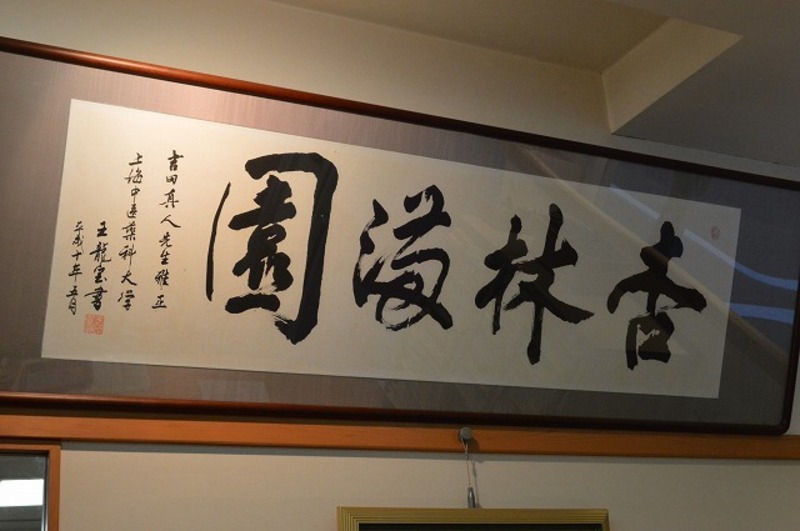 杏林滿園
吉田真人先生雅正
上海中医薬科大学
王龍宝書
平成十年五月